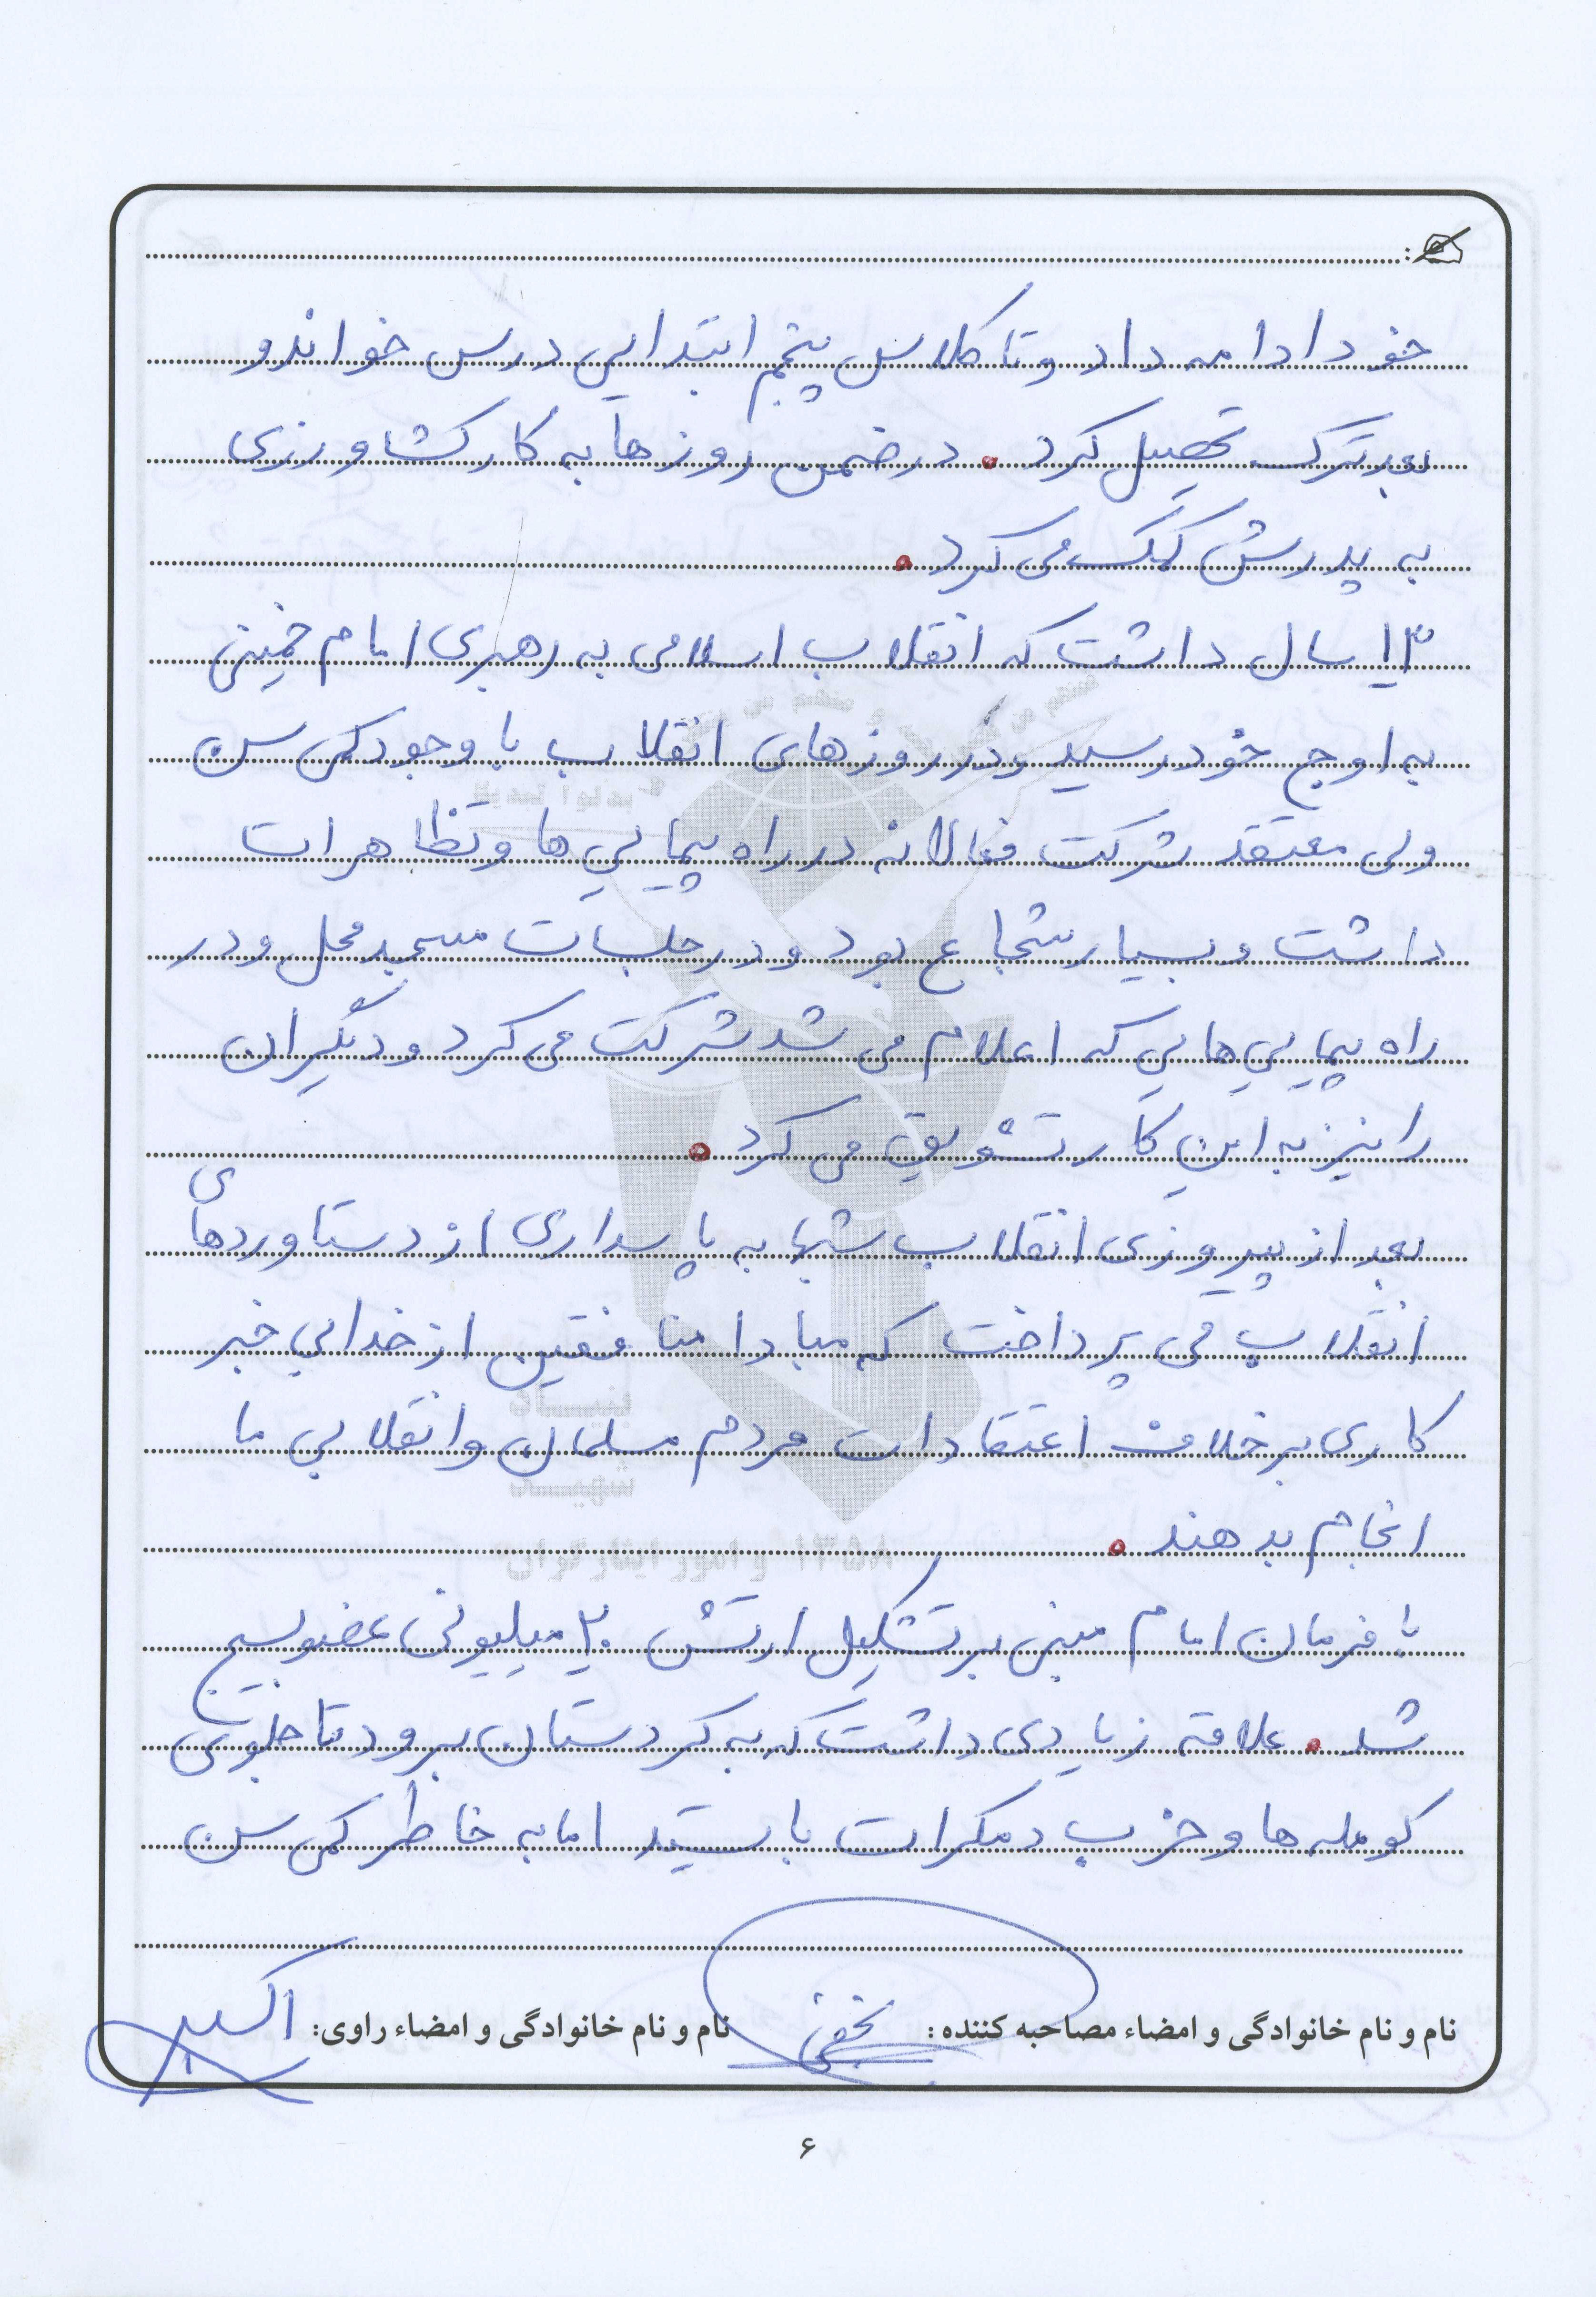 خود ادامه داد و تا کلاس پنجم ابتدایی درس خواند و
بعد ترک تحصیل کرد . در ضمن روزها به کار کشاورزی
به پدرش کمک می کرد .
۱۳ سال داشت که انقلاب اسلامی به رهبری امام خمینی
به اوج خود رسید و در روزهای انقلاب با وجود کمی سن
ولی معتقد شرکت فعالانه در راه پیمایی ها و تظاهرات
داشت و بسیار شجاع بود و در جلسات مسجد محل و در
راه پیمایی هایی که اعلام می شد شرکت می کرد و دیگران
را نیز به این کار تشویق می کرد .
بعد از پیروزی انقلاب شبها به پاسداری از دستاوردهای
انقلاب می پرداخت که مبادا منافقین از خدا بی خبر
کاری بر خلاف اعتقادات مردم مسلمان و انقلابی ما
انجام بدهند .
با فرمان امام مبنی بر تشکیل ارتش ۲۰ میلیونی عضو بسیج
شد . علاقه زیادی داشت که به کردستان برود تا جلوی
کومله ها و حزب دمکرات بایستد اما به خاطر کمی سن
نام و نام خانوادگی و امضاء مصاحبه کننده: نجفی نام و نام خانوادگی و امضاء راوی:
بنیاد
شهید
و امور ایثارگران ۱۳۵۸
۶